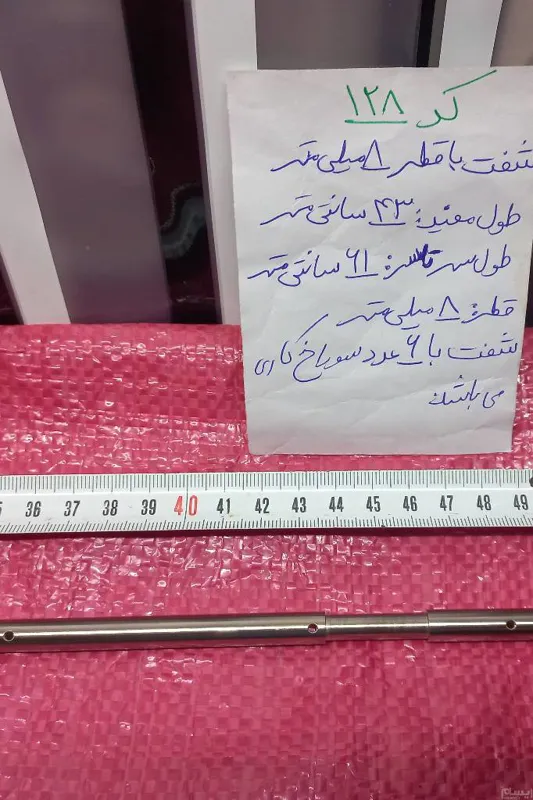 کد ۱۲۸
شفت با قطر ۸ میلی متر
طول مفید: ۴۳ سانتی متر
طول سر تا سر: ۶۱ سانتی متر
قطر: ۸ میلی متر
شفت با ۶ عدد سوراخ کاری
می باشد
36 37 38 39 40 41 42 43 44 45 46 47 48 49
باسلام